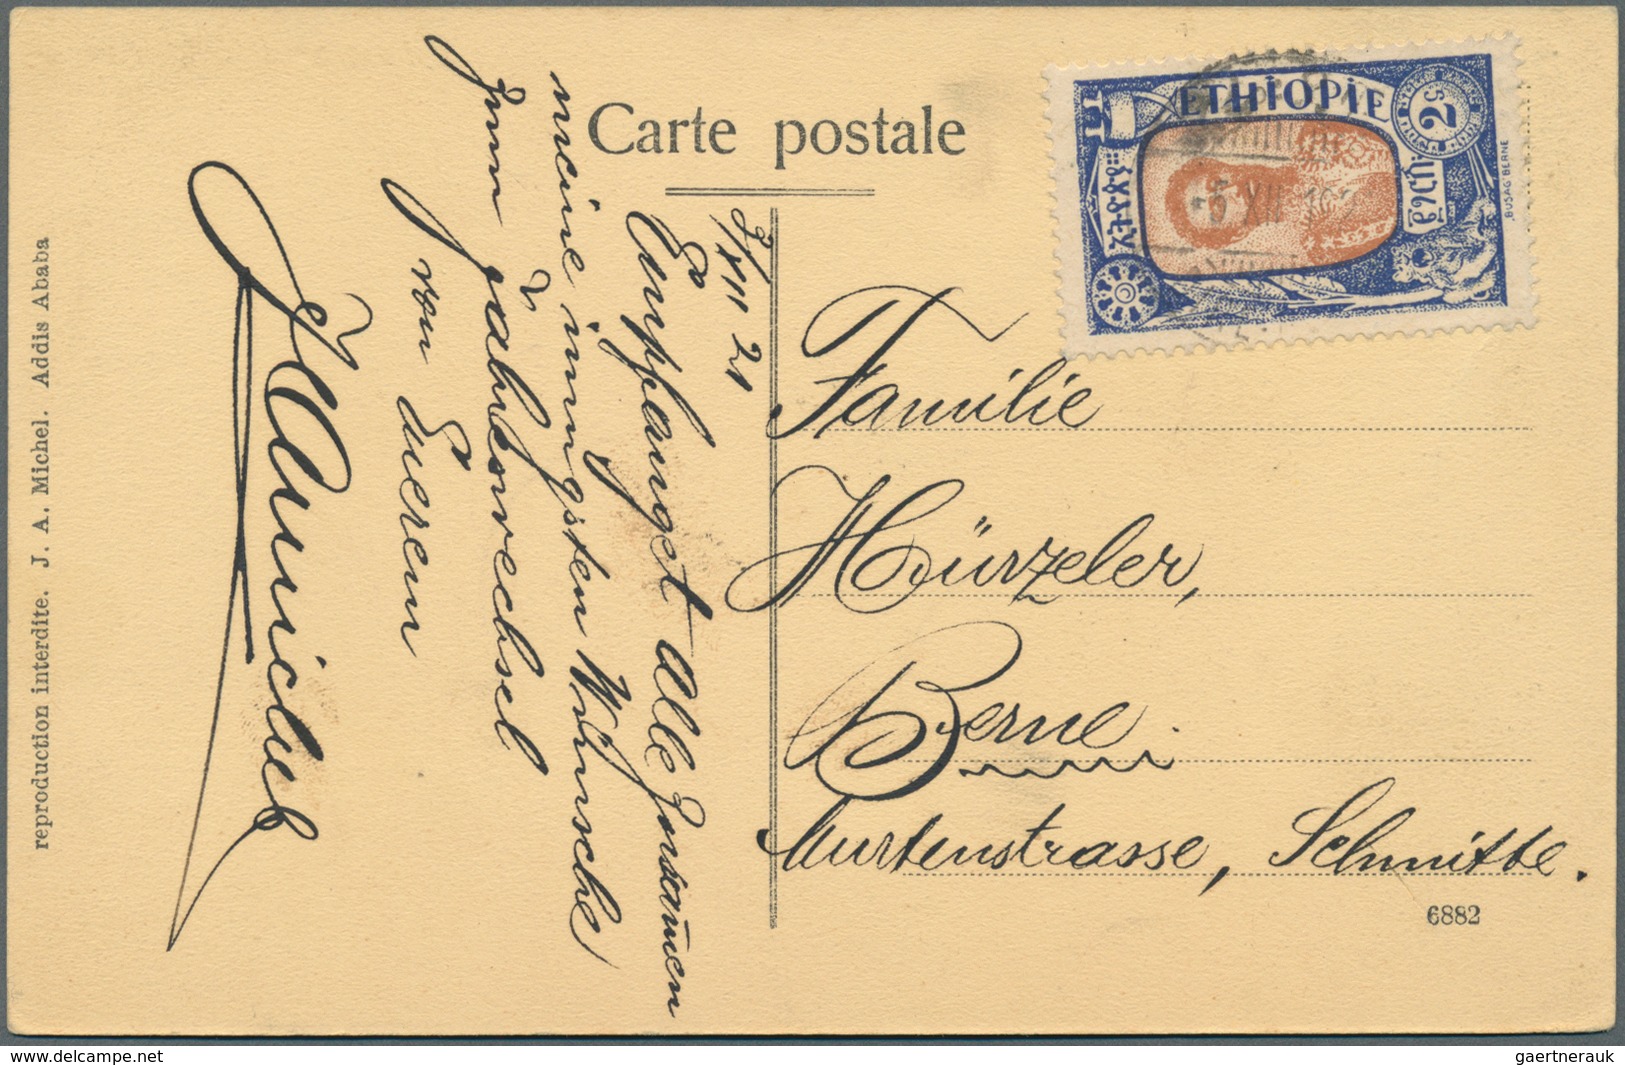 Carte postale
ETHIOPIE
2g
BUSAG BERNE
ኢትዮጵያ።
ግርሽ
5 XII 192
3/XII 21
Empfanget Alle zusamen
meine innigsten Wünsche
zum Jahreswechsel
von Eurem
Familie
Hürzeler,
Berne
Murtenstrasse, Schmitte.
6882
reproduction interdite. J. A. Michel. Addis Ababa
www.delcampe.net
gaertnerauk